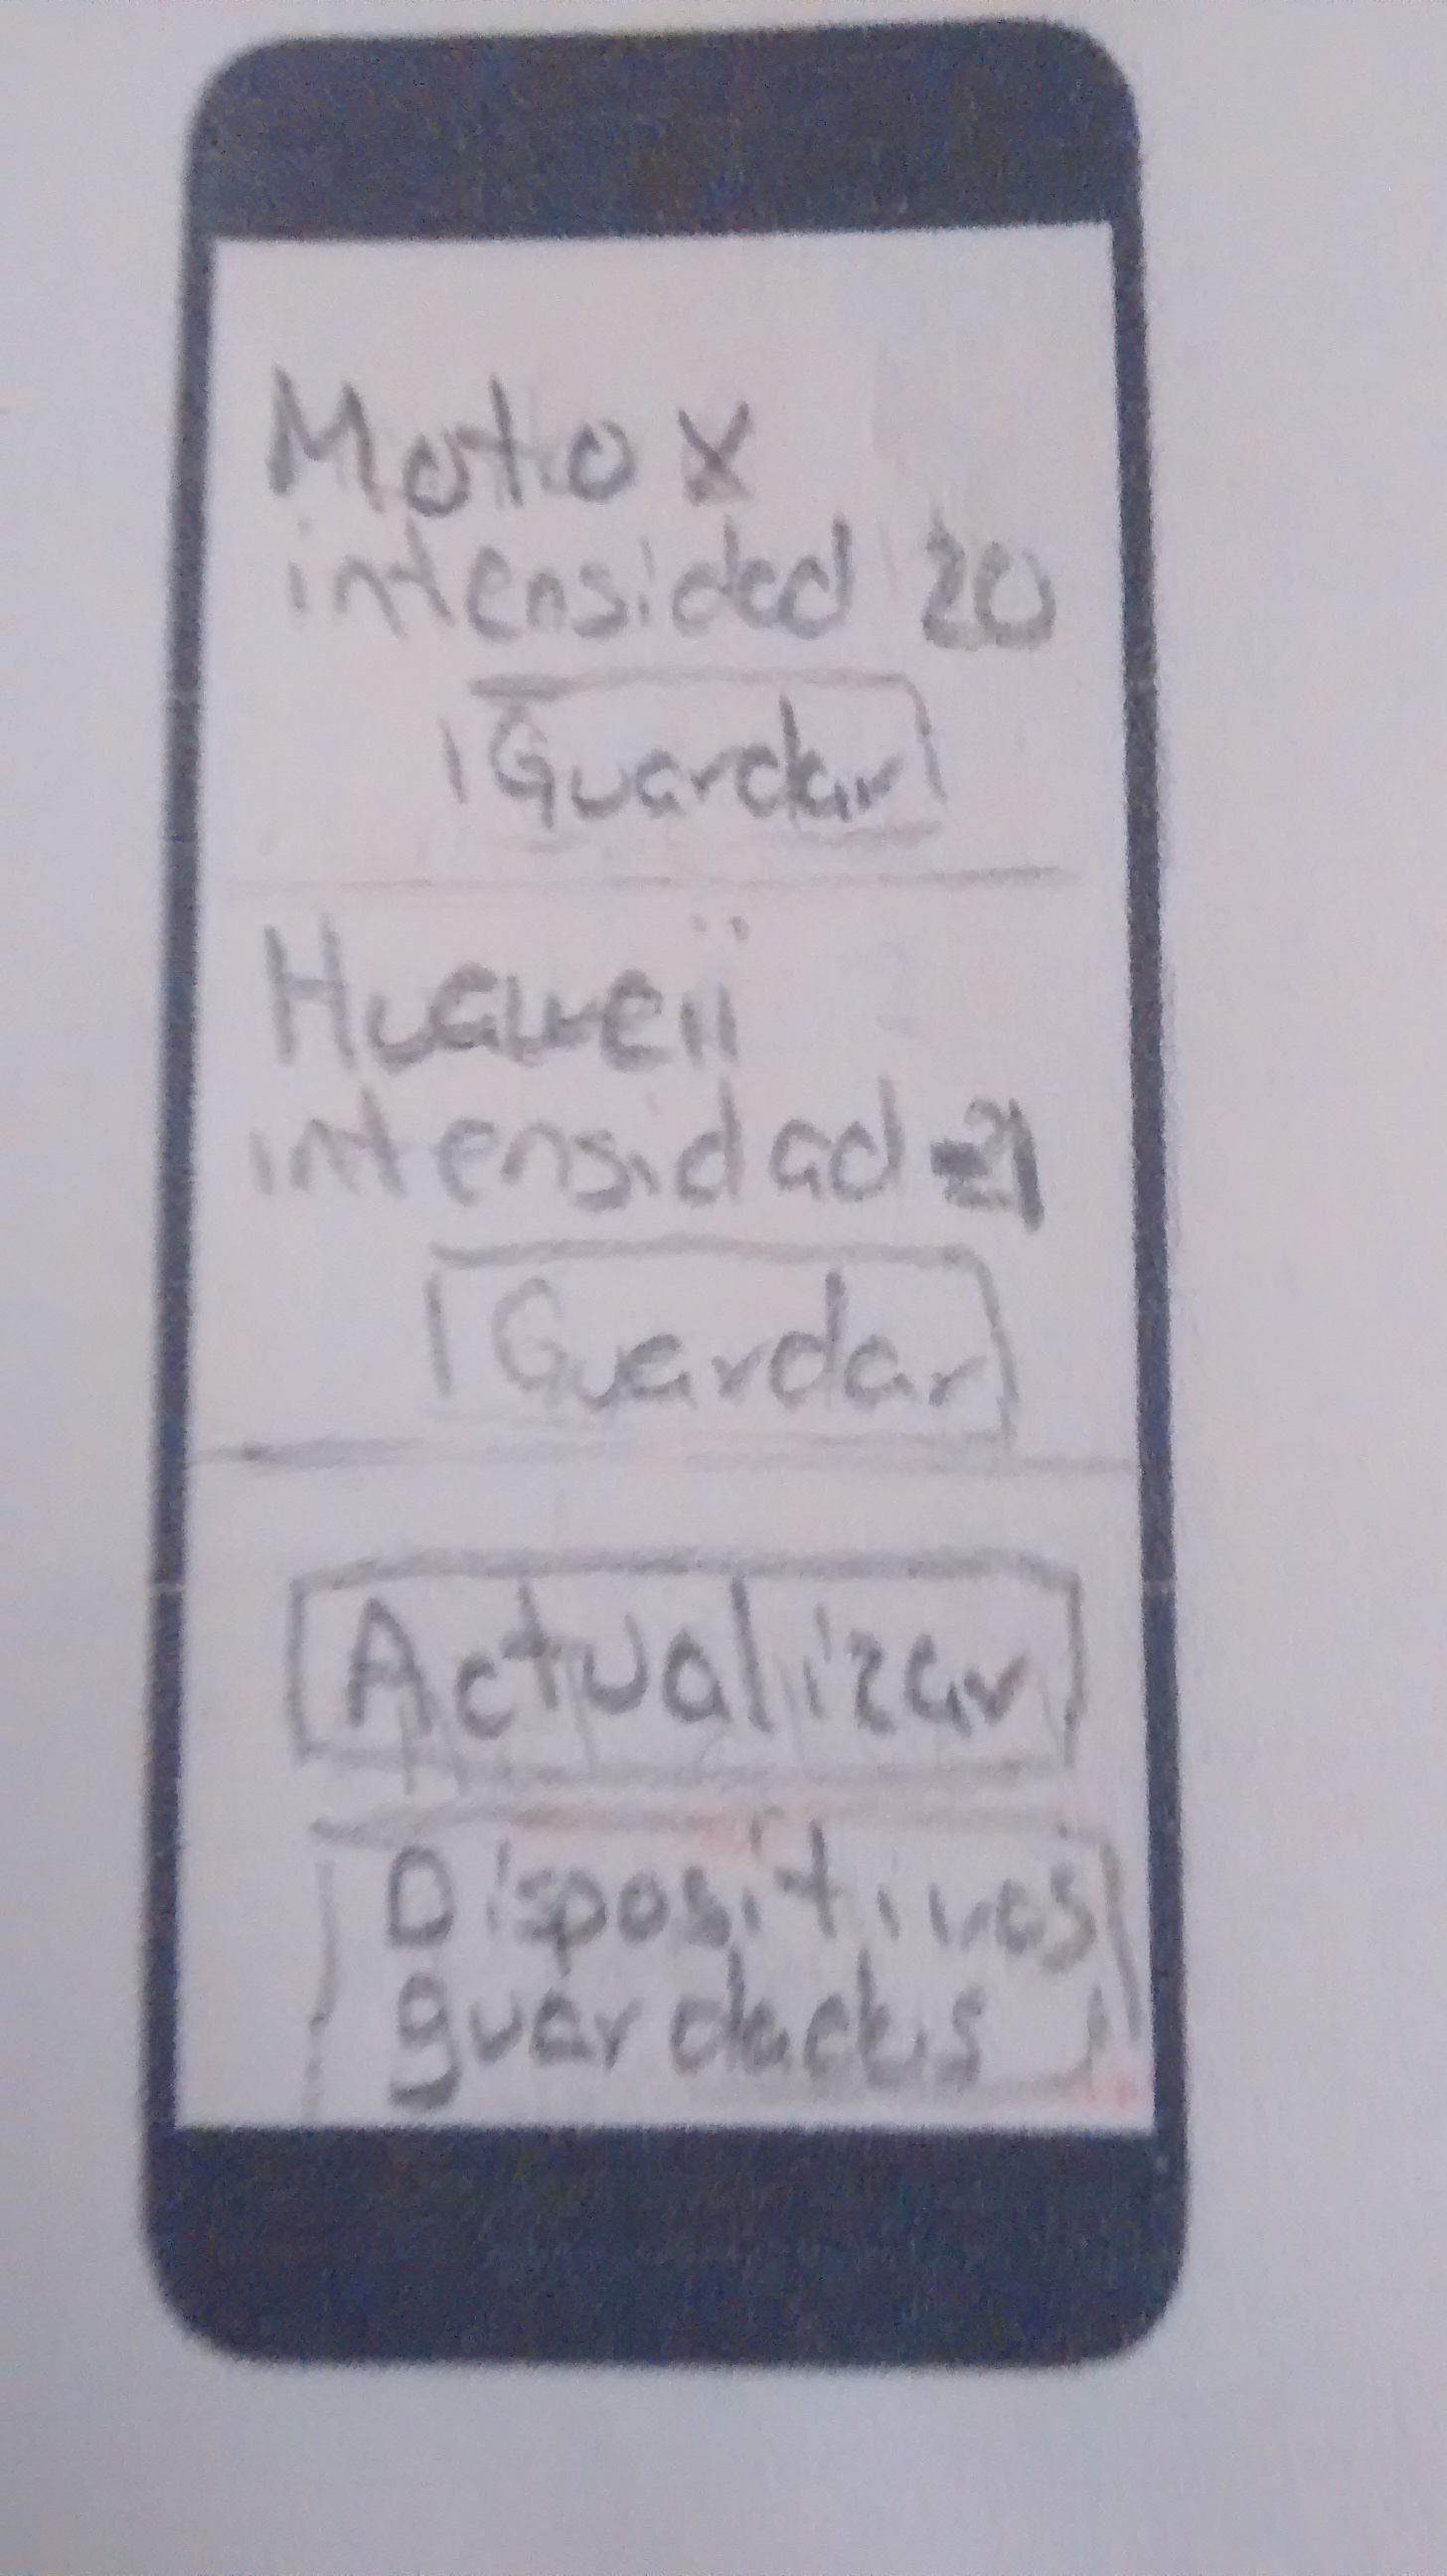 Moto X
intensidad 20
Guardar
Huaweii
intensidad 21
Guardar
Actualizar
Dispositivos
guardados